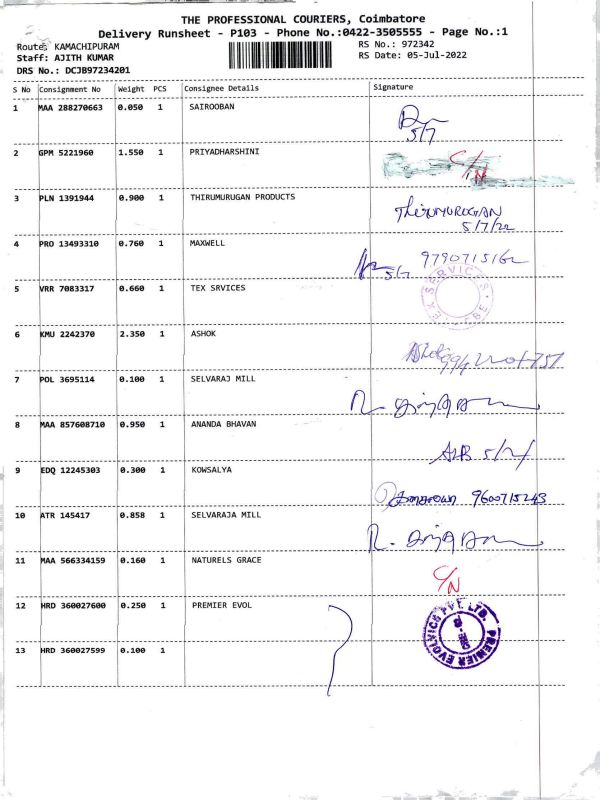 THE PROFESSIONAL COURIERS, Coimbatore
Delivery Runsheet - P103 - Phone No.:0422-3505555 - Page No.:1
Route: KAMACHIPURAM
RS No.: 972342
Staff: AJITH KUMAR
RS Date: 05-Jul-2022
DRS No.: DCJB97234201
S No Consignment No Weight PCS Consignee Details Signature
1 MAA 288270663 0.050 1 SAIROOBAN
5/7
2 GPM 5221960 1.550 1 PRIYADHARSHINI C/N
3 PLN 1391944 0.900 1 THIRUMURUGAN PRODUCTS THIRUMURUGAN
5/7/22
4 PRO 13493310 0.760 1 MAXWELL
5/7 9790715162
5 VRR 7083317 0.660 1 TEX SRVICES TEX SERVICES CBE
6 KMU 2242370 2.350 1 ASHOK Ashok
7 POL 3695114 0.100 1 SELVARAJ MILL
8 MAA 857608710 0.950 1 ANANDA BHAVAN
5/7/
9 EDQ 12245303 0.300 1 KOWSALYA 9600715243
10 ATR 145417 0.858 1 SELVARAJA MILL
11 MAA 566334159 0.160 1 NATURELS GRACE C/N
12 HRD 360027600 0.250 1 PREMIER EVOL PREMIER EVOLVICS PVT. LTD.
13 HRD 360027599 0.100 1